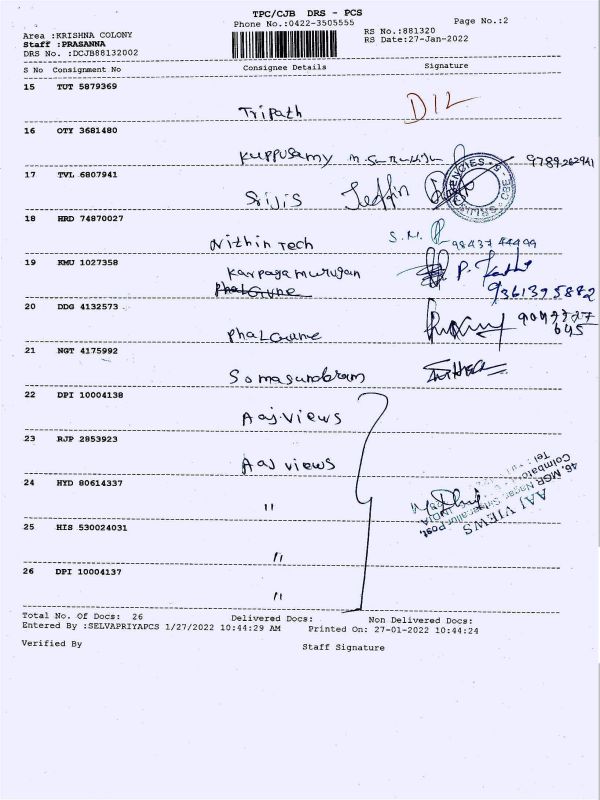 TPC/CJB DRS - PCS
Phone No.:0422-3505555
Page No.:2
Area :KRISHNA COLONY
RS No.:881320
Staff :PRASANNA
RS Date:27-Jan-2022
DRS No. :DCJB88132002
S No Consignment No Consignee Details Signature
15 TUT 5879369
Tripath DIL
16 OTY 3681480
Kuppusamy 9789262941
17 TVL 6807941
Srijis Jeffin
18 HRD 74870027
Nithin Tech S.M. 98437 44499
19 KMU 1027358
Karpagamurugan P.
9361395882
20 DDG 4132573
Phalgune
645
21 NGT 4175992
Somasundaram
22 DPI 10004138
Aaj.views
23 RJP 2853923
Aaj views
24 HYD 80614337
"
AAJ VIEWS
46, MGR Nagar,
Post,
INDIA
25 HIS 530024031
"
26 DPI 10004137
"
Total No. Of Docs: 26 Delivered Docs: Non Delivered Docs:
Entered By :SELVAPRIYAPCS 1/27/2022 10:44:29 AM Printed On: 27-01-2022 10:44:24
Verified By Staff Signature